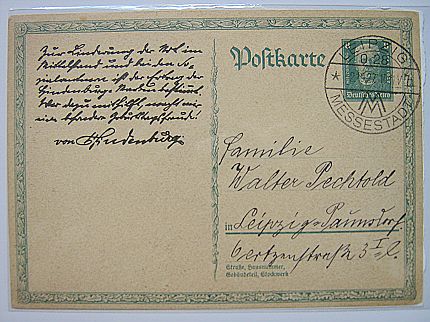 Zur Linderung der Not im
Mittelstand und bei den So-
zialrentnern ist der Ertrag der
Hindenburg-Marken bestimmt.
Wer dazu mithilft, macht mir
eine besondere Geburtstagsfreude!
von Hindenburg
Postkarte
LEIPZIG
MESSESTADT
Familie
Walter Pechtold
in Leipzig-Paunsdorf
Oertzenstraße 3 I l.
Straße, Hausnummer,
Gebäudeteil, Stockwerk